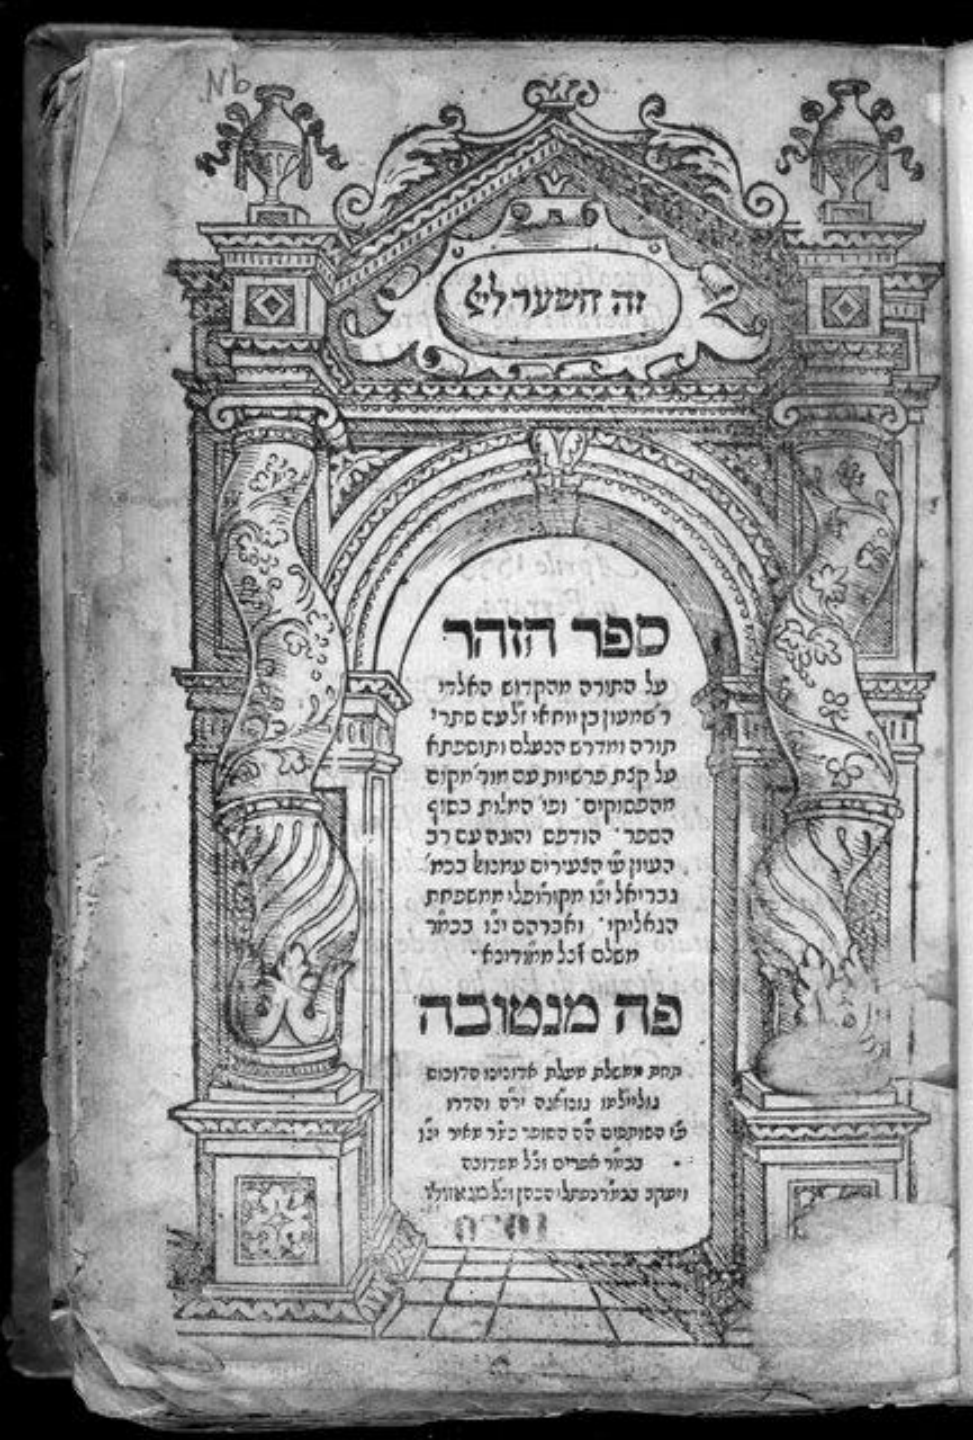 Nb
זה השער לײ
ספר הזהר
על התורה מהקדוש האלדי
ר' שמעון בן יוחאי ז"ל עם סתרי
תורה ומדרש הנעלם ותוספתא
על קצת פרשיות עם מור' מקום
מהפסוקים ופי' המלות בסוף
הספר הודפס והוגה עם רב
העיון ע"י הצעירים עמנוא' בכמ'
גבריאל יצ"ו מקורופולי ממשפחת
הגאליקי ואברהם יצ"ו בכמ"ר
משלם זצ"ל ממודינא
פה מנטובה
תחת ממשלת מעלת אדונינו הדוכוס
גוליילמו גונזאגה יר"ה והדרו
ע"י השותפים ה"ה הסופר כמ"ר מאיר יצ"ו
בכמ"ר אפרים זצ"ל מפדובה
ויעקב בכמ"ר נפתלי הכהן זצ"ל מגאזולו
Aprile 15